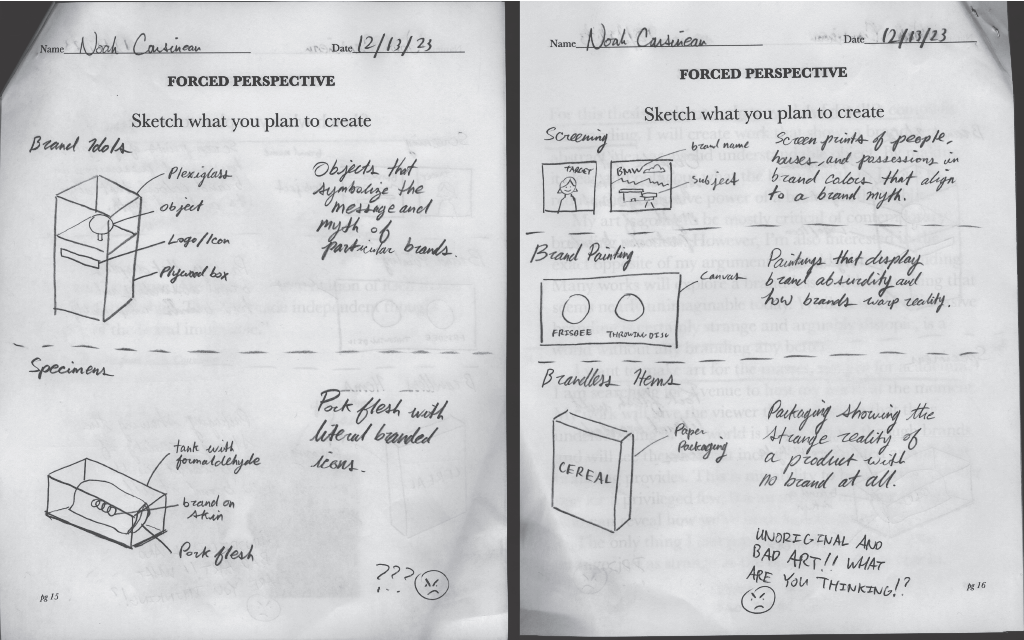 Name Noah Cousineau Date 12/13/23
FORCED PERSPECTIVE
Sketch what you plan to create
Brand Idols
Plexiglass
object
Logo/Icon
Plywood box
Objects that
symbolize the
message and
myth of
particular brands.
Specimens
tank with
formaldehyde
brand on
skin
Pork flesh
Pork flesh with
literal branded
icons.
???
pg 15
Name Noah Cousineau Date 12/13/23
FORCED PERSPECTIVE
Sketch what you plan to create
Screening
TARGET
BMW
brand name
subject
Screen prints of people,
houses, and possessions in
brand colors that align
to a brand myth.
Brand Painting
FRISBEE
THROWING DISC
Canvas
Paintings that display
brand absurdity and
how brands warp reality.
Brandless Items
CEREAL
Paper
Packaging
Packaging showing the
strange reality of
a product with
no brand at all.
UNORIGINAL AND
BAD ART!! WHAT
ARE YOU THINKING!?
pg 16